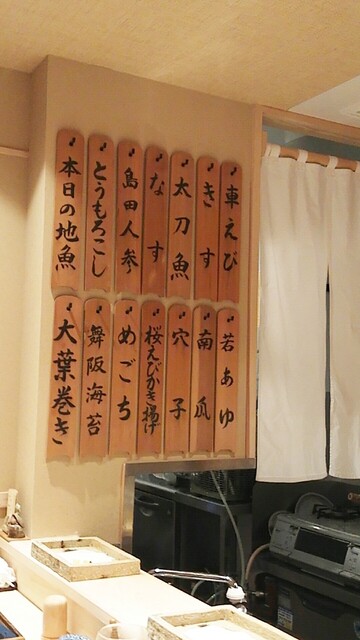 車えび
きす
太刀魚
なす
島田人参
とうもろこし
本日の地魚
若あゆ
南瓜
穴子
桜えびかき揚げ
めごち
舞阪海苔
大葉巻き